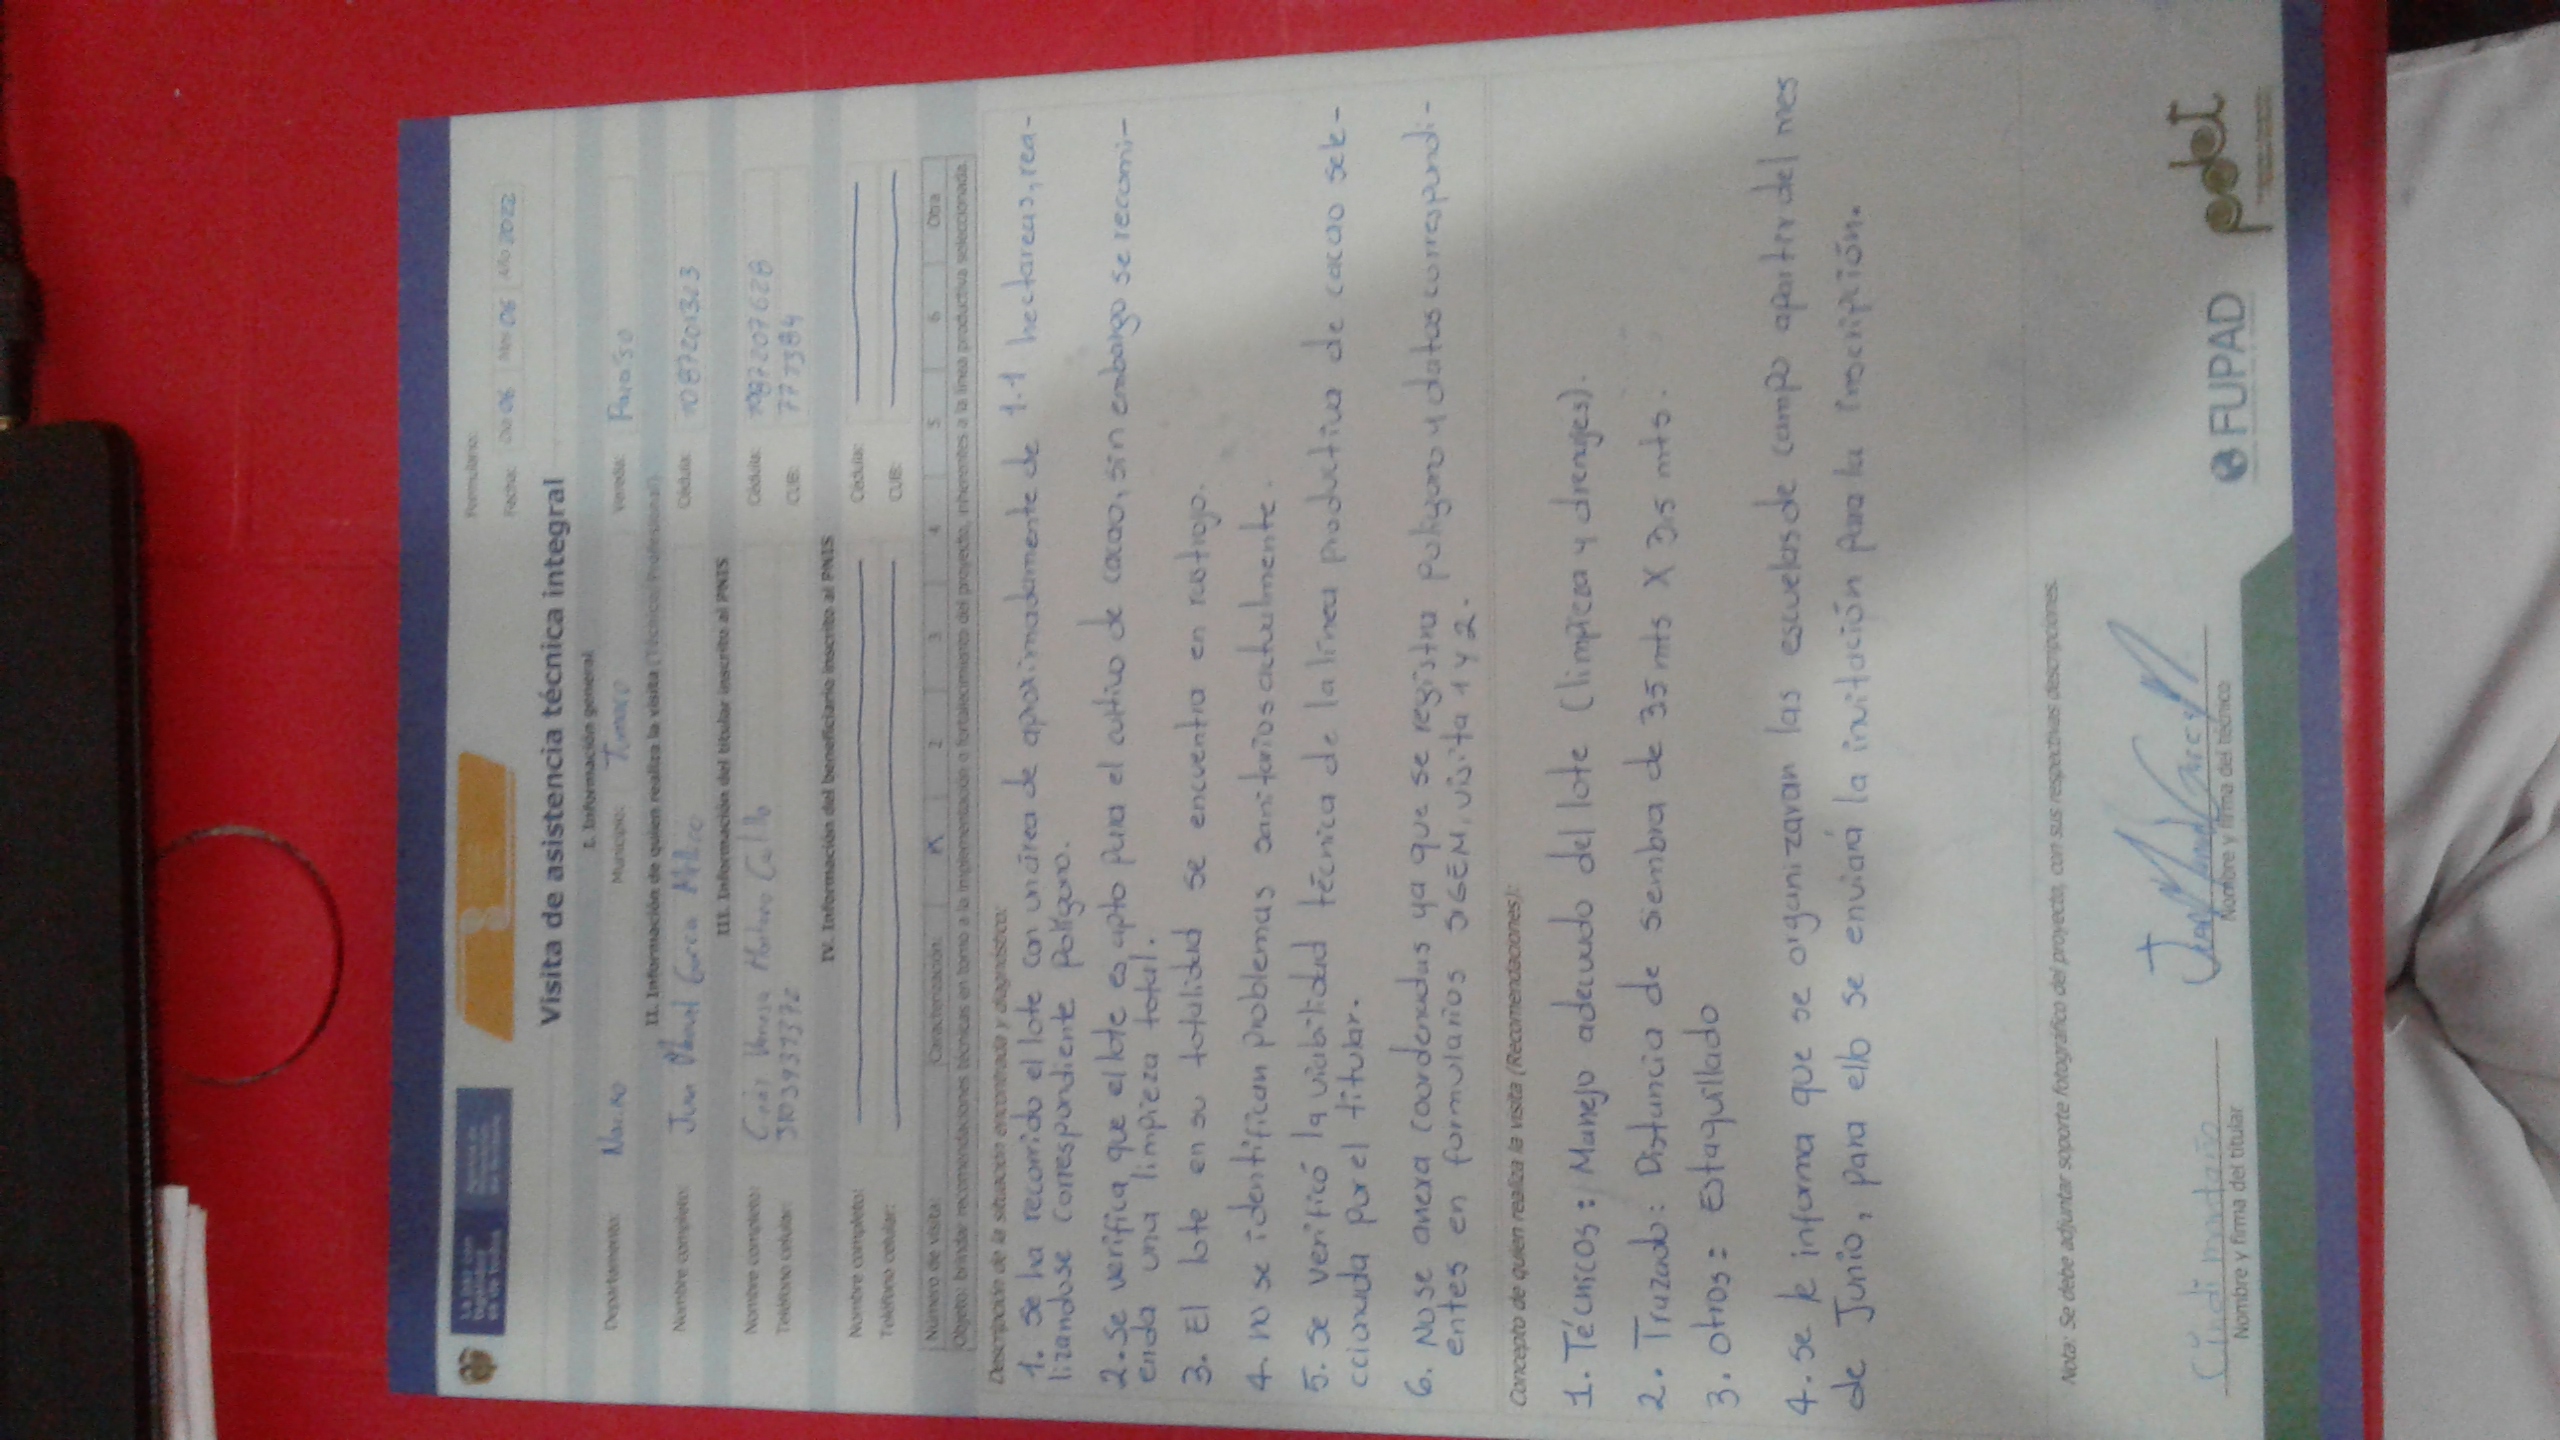 La paz con legalidad es de Todos
Agencia de Renovación del Territorio
Formulario:
Fecha: Día 06 Mes 06 Año 2022
Visita de asistencia técnica integral
I. Información general
Departamento: Nariño Municipio: Tumaco Vereda: Paraiso
II. Información de quien realiza la visita (Técnico/Profesional)
Nombre completo: Juan Garcia Cédula: 1087201323
III. Información del titular inscrito al PNIS
Nombre completo: Vanesa Cédula: 1087207628
Teléfono celular: 3103937372 CUB: 777384
IV. Información del beneficiario inscrito al PNIS
Nombre completo: Cédula:
Teléfono celular: CUB:
Número de visita: Caracterización: X 2 3 4 5 6 Otra
Objeto: brindar recomendaciones técnicas en torno a la implementación o fortalecimiento del proyecto, inherentes a la línea productiva seleccionada.
Descripción de la situación encontrada y diagnóstico:
1. se ha recorrido el lote con un área de aproximadamente de 1.1 hectareas, rea-
lizandose correspondiente polígono.
2. se verifica que el lote es apto para el cultivo de cacao, sin embargo se recomi-
enda una limpieza total.
3. El lote en su totalidad se encuentra en rastrojo.
4. no se identifican problemas sanitarios actualmente.
5. se verificó la viabilidad técnica de la línea productiva de cacao sele-
ccionada por el titular.
6. No se anexa coordenadas ya que se registra polígono y datos correspondi-
entes en formularios SIGEM, visita 1 y 2.
Concepto de quien realiza la visita (Recomendaciones):
1. Técnicos: Manejo adecuado del lote (limpieza y drenajes).
2. Trazado: Distancia de siembra de 3.5 mts X 3.5 mts.
3. otros: Estaquillado
4. se le informa que se organizaran las escuelas de campo apartir del mes
de Junio, para ello se enviará la invitación para la inscripción.
Nota: Se debe adjuntar soporte fotográfico del proyecto, con sus respectivas descripciones.
Cindi montaño
Nombre y firma del titular Nombre y firma del técnico
FUPAD pdet